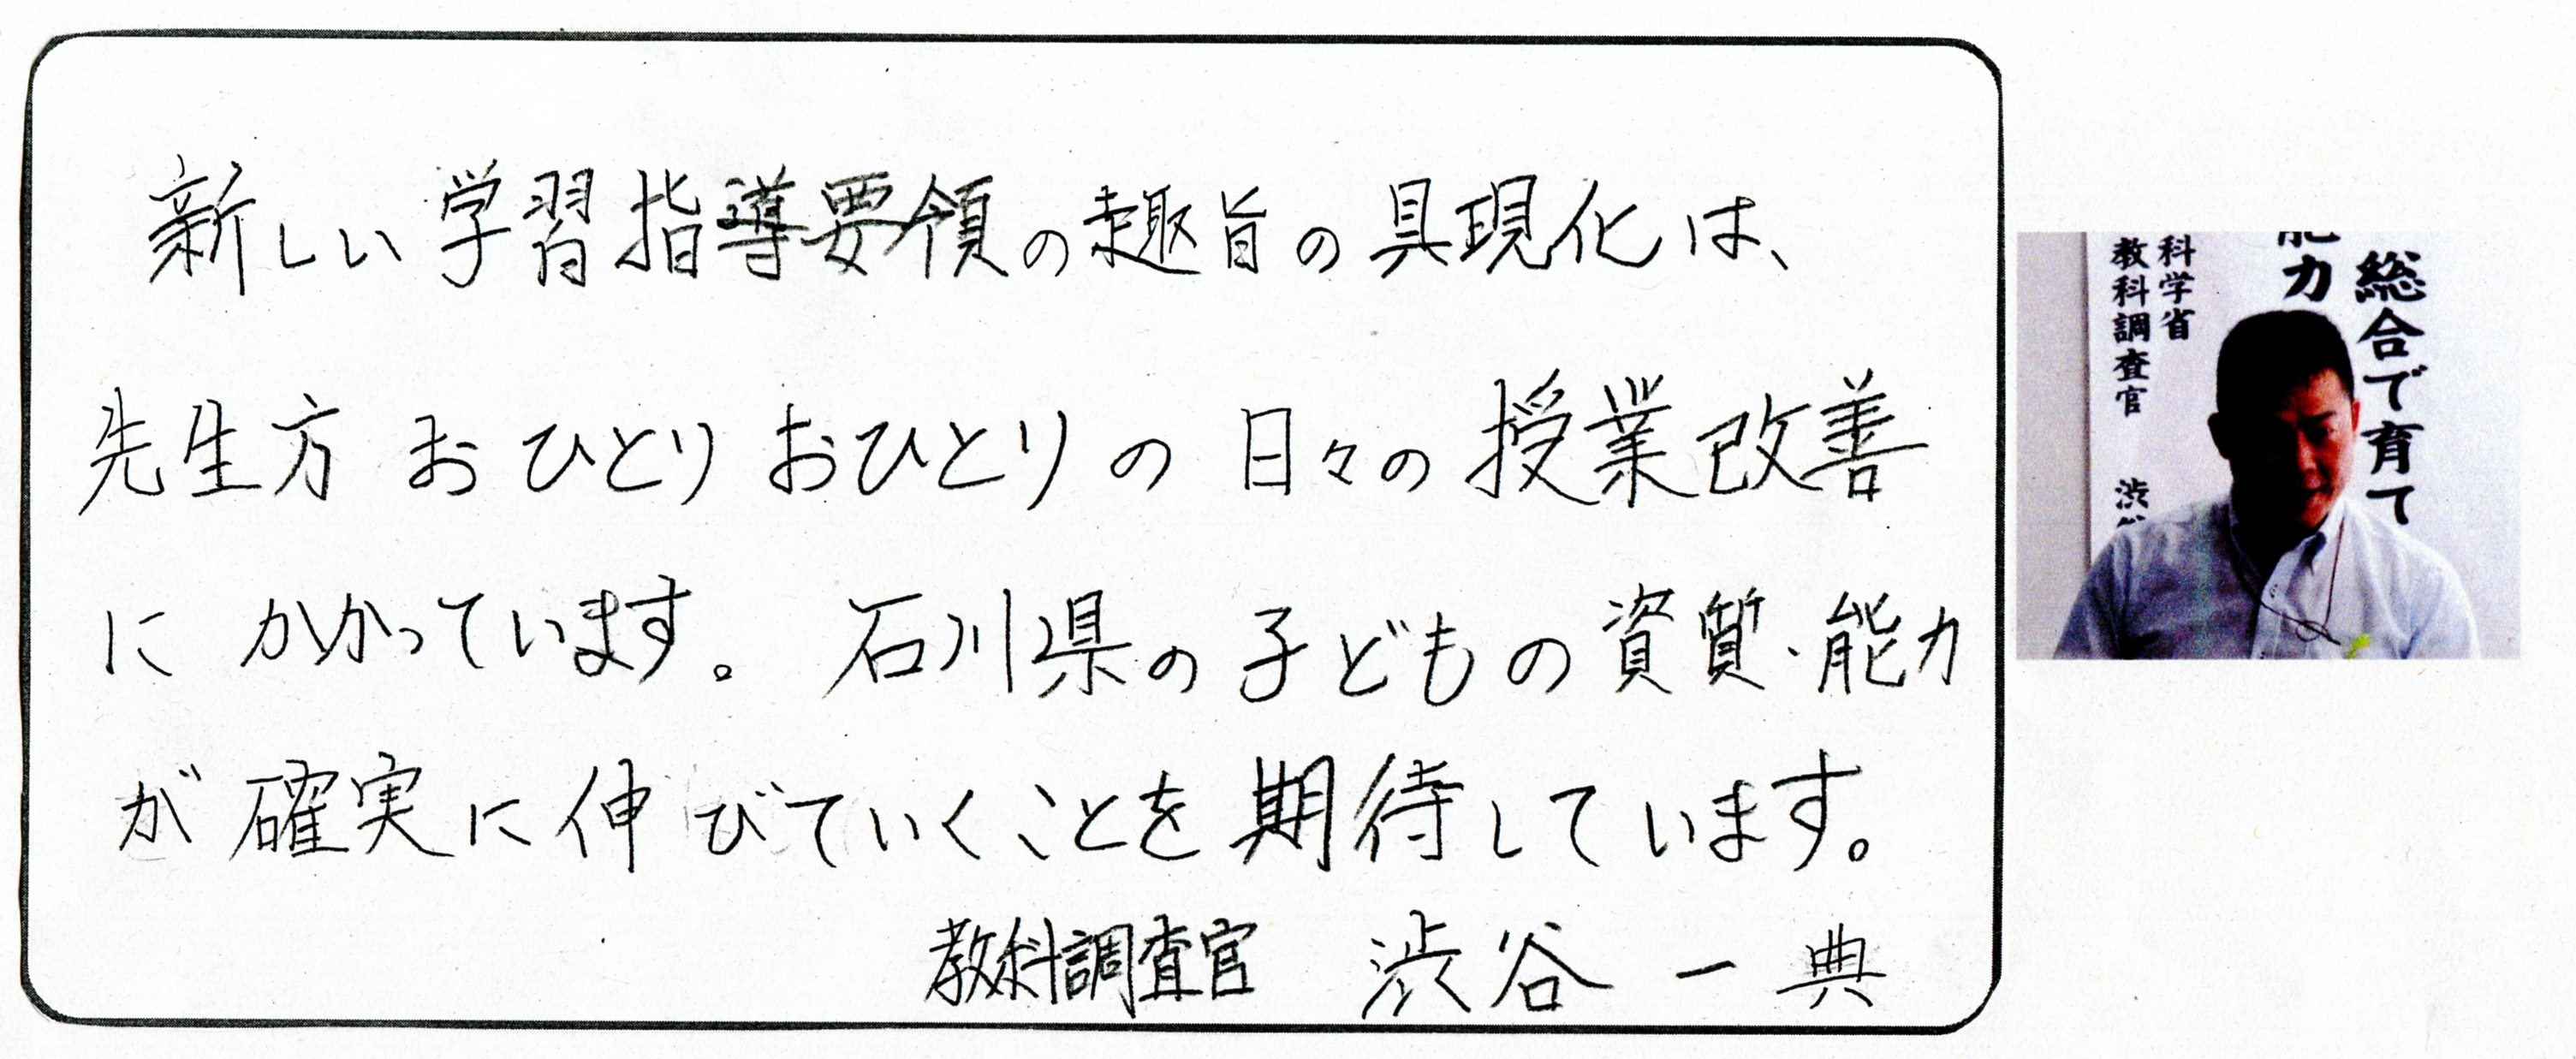 新しい学習指導要領の趣旨の具現化は、
先生方おひとりおひとりの日々の授業改善
にかかっています。石川県の子どもの資質・能力
が確実に伸びていくことを期待しています。
教科調査官 渋谷一典
総合で育て
能力
科学省
教科調査官 渋谷